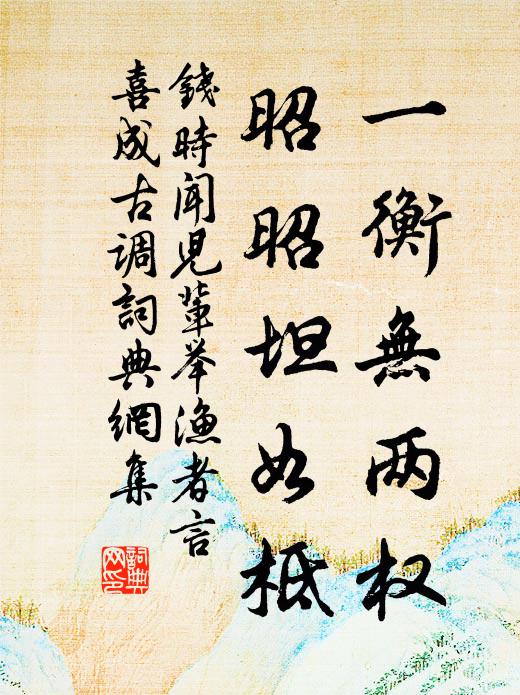 一衡無两权
昭昭坦如柢
錢時闻児輩举漁者言
喜成古调詞典網集
詞典网印